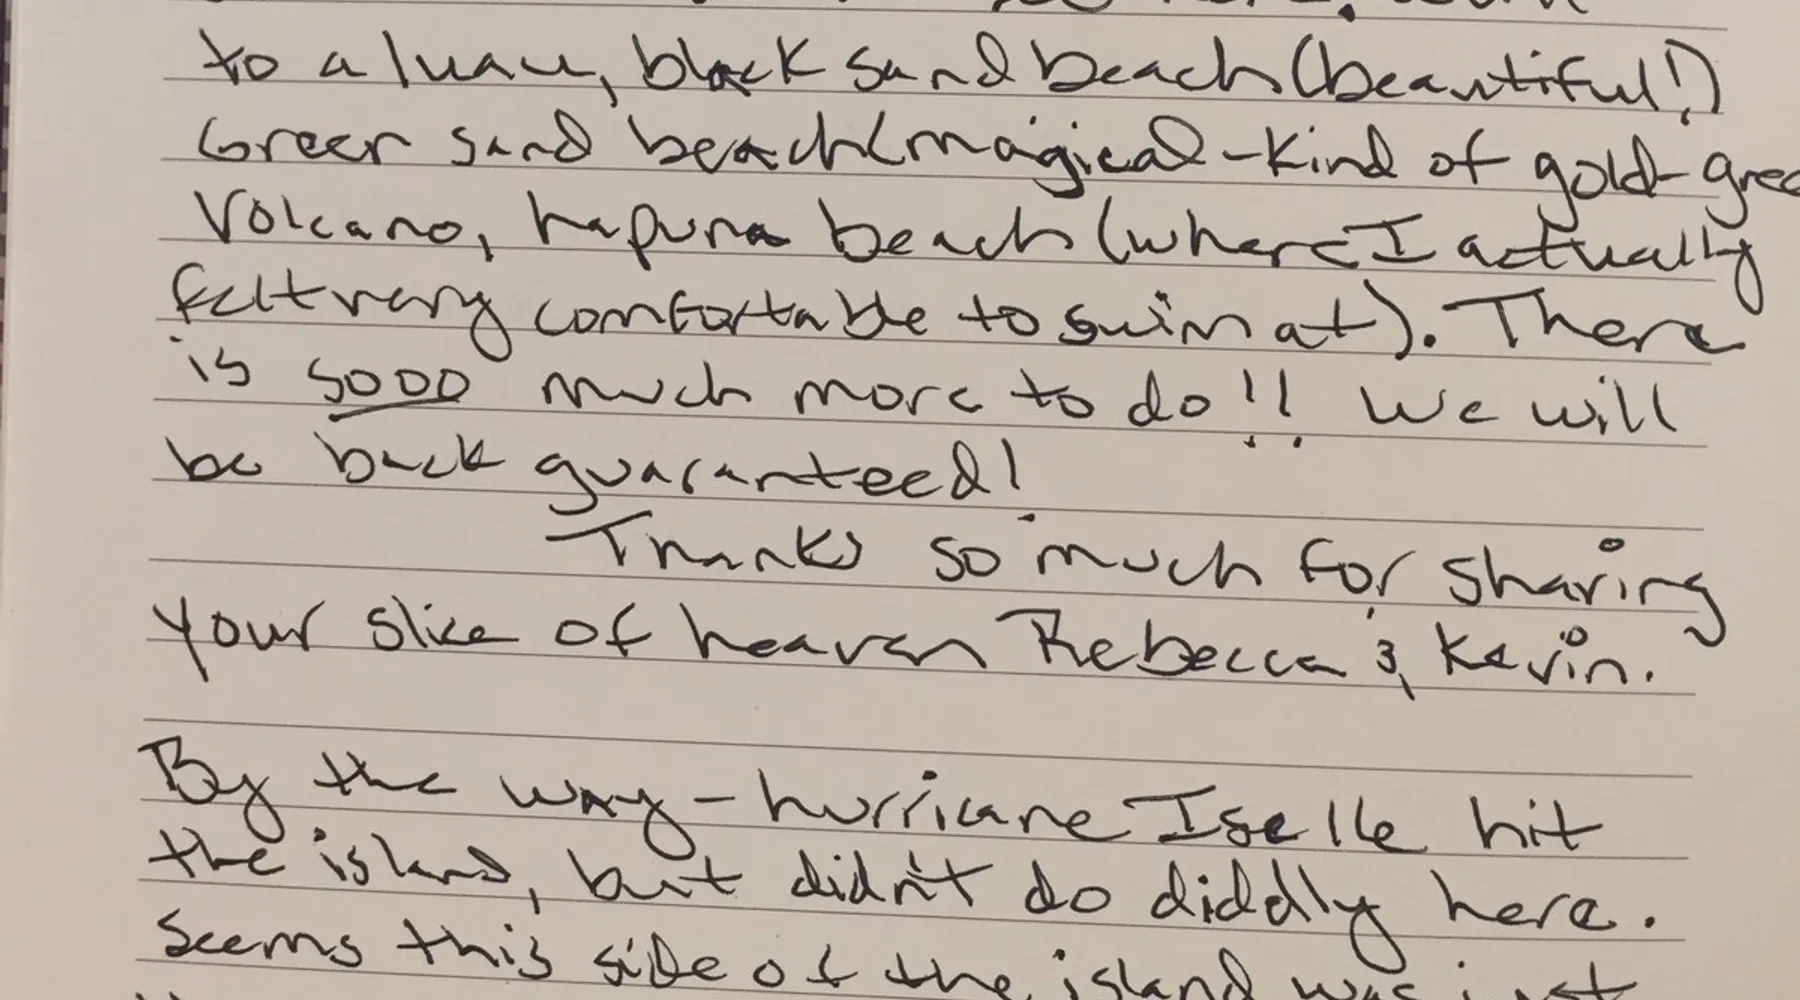 to a luau, black sand beach (beautiful!)
Green sand beach (magical - kind of gold-gree
Volcano, hapuna beach (where I actually
felt very comfortable to swim at). There
is sooo much more to do!! We will
be back guaranteed!
Thanks so much for sharing
your slice of heaven Rebecca & Kevin.
By the way - hurricane Iselle hit
the island, but didn't do diddly here.
Seems this side of the island was just